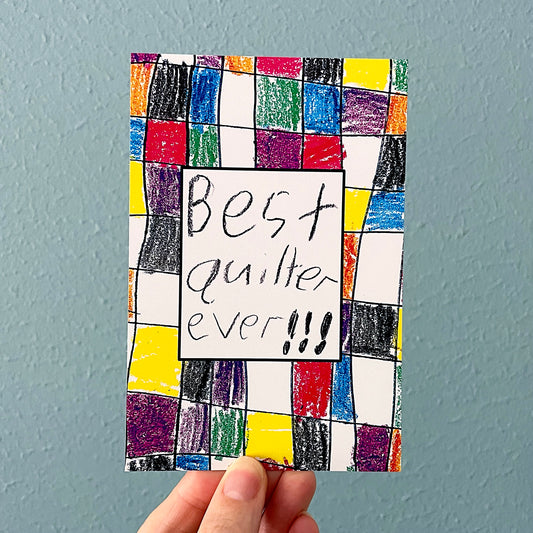 Best
quilter
ever!!!